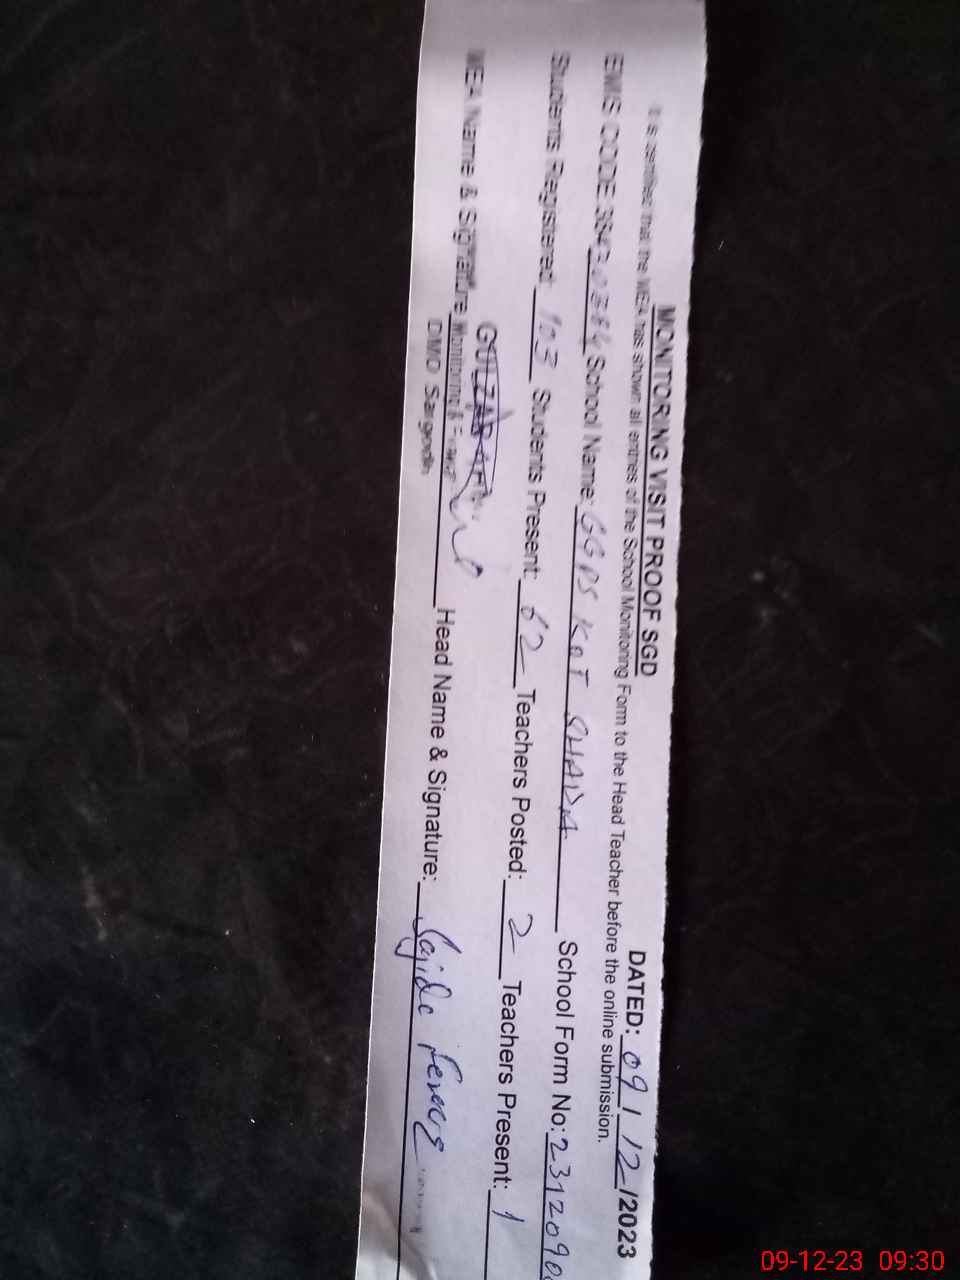 MONITORING VISIT PROOF SGD DATED: 09/12/2023
It is certified that the MEA has shown all entries of the School Monitoring Form to the Head Teacher before the online submission.
EMIS CODE: School Name: GGPS KOT SHADA School Form No: 2312090
Students Registered: 103 Students Present: 62 Teachers Posted: 2 Teachers Present: 1
GULZAR
MEA Name & Signature Monitoring & Head Name & Signature: Sajida
DMO Sargodh
09-12-23 09:30